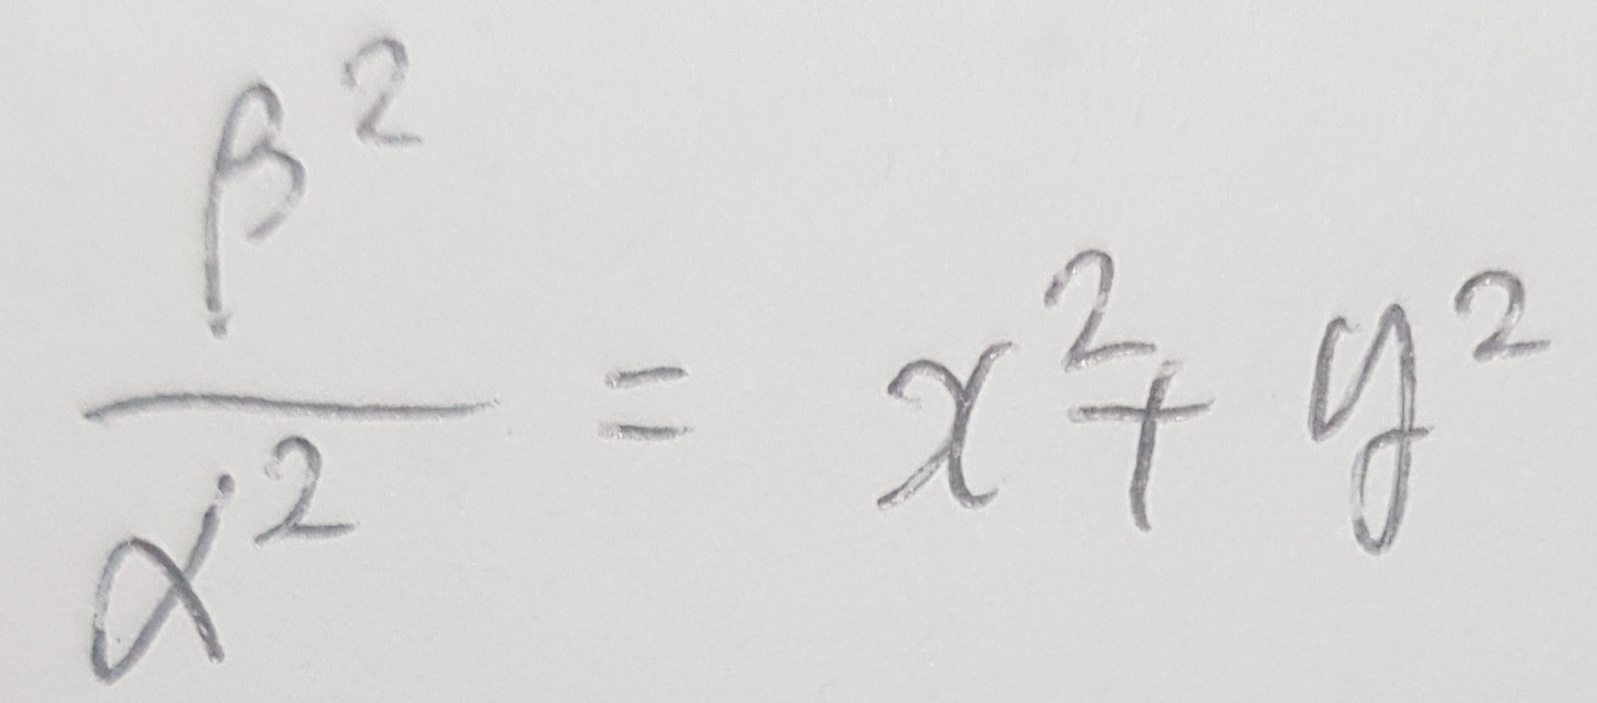 β²/α² = x² + y²